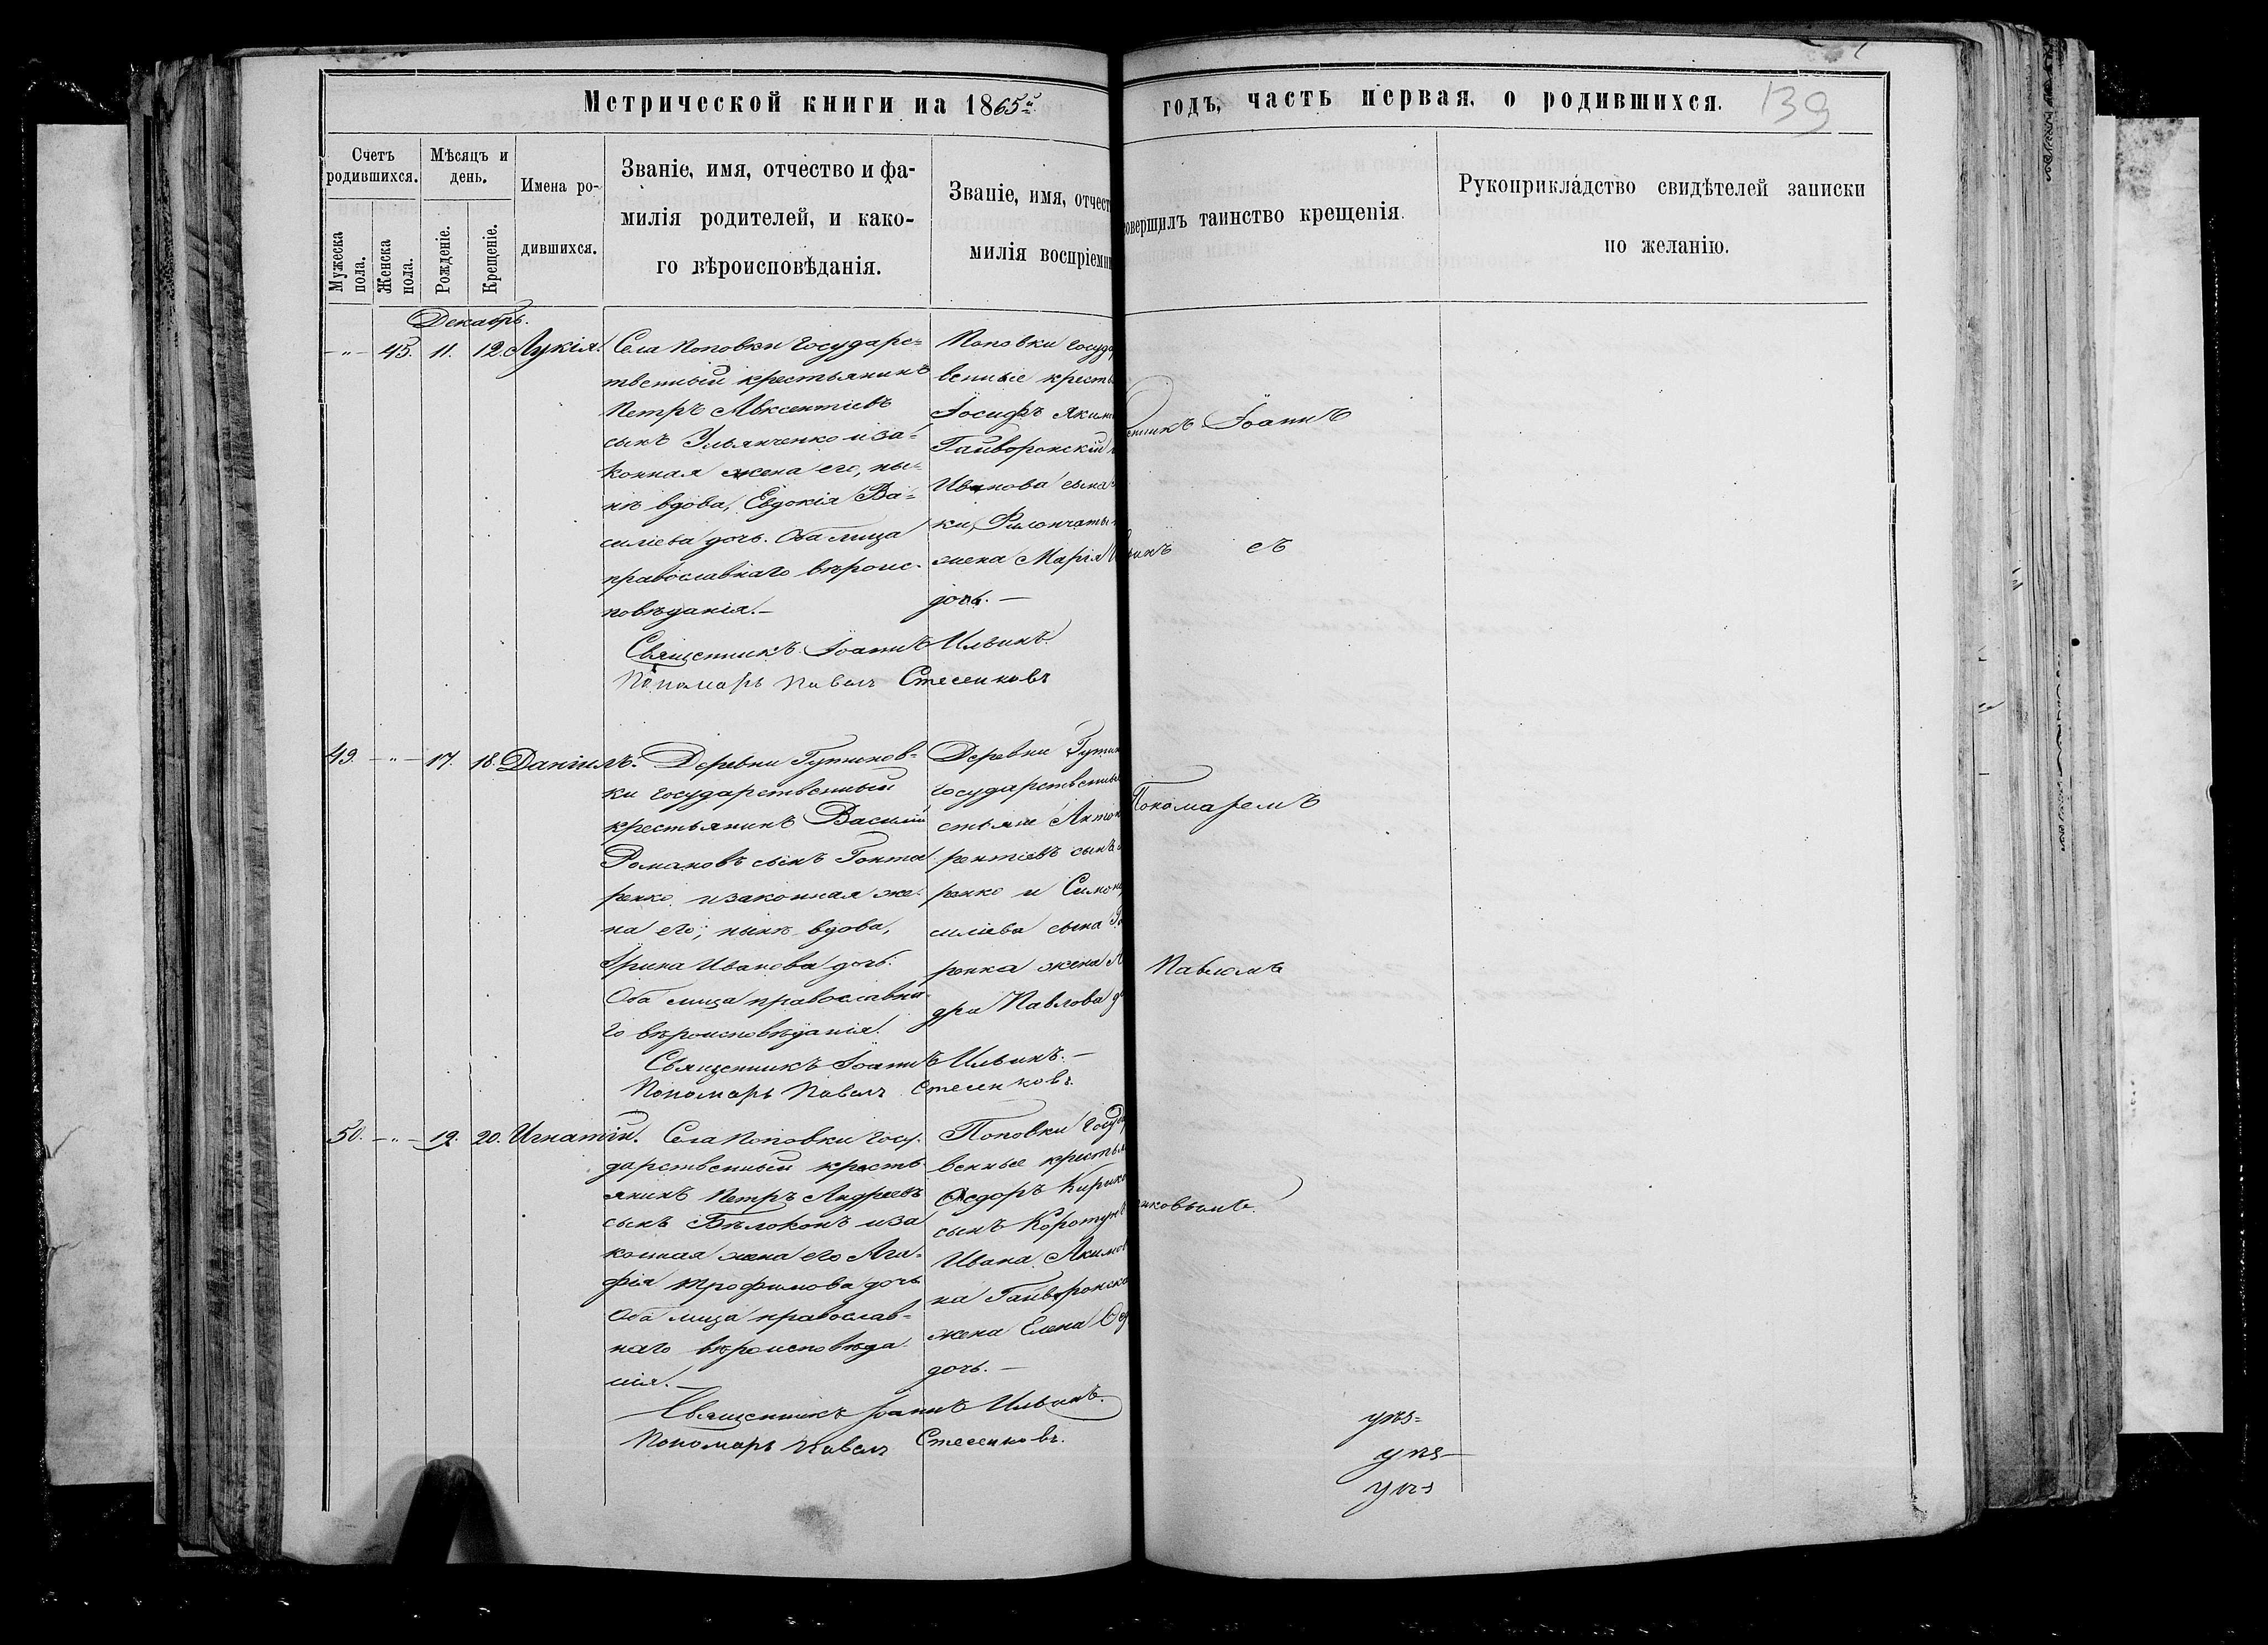 Метрической книги на 1865й
годъ, часть первая, о родившихся.
139
Счетъ родившихся.
Мужеска пола.
Женска пола.
Мѣсяцъ и день.
Рожденіе.
Крещеніе.
Имена ро-
дившихся.
Званіе, имя, отчество и фа-
милія родителей, и како-
го вѣроисповѣданія.
Званіе, имя, отчест
милія воспріемн
овершилъ таинство крещенія.
Рукоприкла́дство свидѣтелей записки
по желанію.
Декабрь.
-"- 45. 11. 12. Лукія.
Села Поповки Государс=
твенный крестьянинъ
Петръ Авксентіевъ
сынъ Ульянченко и за-
конная жена его, ны=
нѣ вдова, Евдокія Ва=
силіева дочь. Оба лица
православнаго вѣроис-
повѣданія.-
Поповки госуда
венные кресть
Іосифъ Яким
Гайворонскій
Иванова сына
ки,
жена Марія
дочь. -
Священникъ Іоаннъ Ильинъ.
Пономарь Павелъ Стесенковъ
енникъ Іоаннъ
съ
49. -"- 17. 18. Даніилъ.
Деревни Гутников-
ки государственный
крестьянинъ Василій
Романовъ сынъ Гонта
ренко и законная же-
на его, нынѣ вдова,
Ірина Иванова дочь.
Оба лица православна-
го вѣроисповѣданія.
Деревни Гутни
государственные
стьяне Антон
рентіевъ сынъ
ренко и Симон
силіева сына
ренка жена А
дра Павлова д
Священникъ Іоаннъ Ильинъ.-
Пономарь Павелъ Стесенковъ.
Пономаремъ
Павломъ
50. -"- 19. 20. Игнатій.
Села Поповки Госу-
дарственный кресть
янинъ Петръ Андреевъ
сынъ Бѣлоконь и за
конная жена его Ага=
фія Трофимова дочь
Оба лица православ=
наго вѣроисповѣда
нія.-
Поповки Госуда
венные крестья
Ѳедоръ Кирик
сынъ Коротун
Ивана Акимов
на Гайворонска
жена Елена
дочь. -
Священникъ Іоаннъ Ильинъ.
Пономарь Павелъ Стесенковъ.
нковымъ.